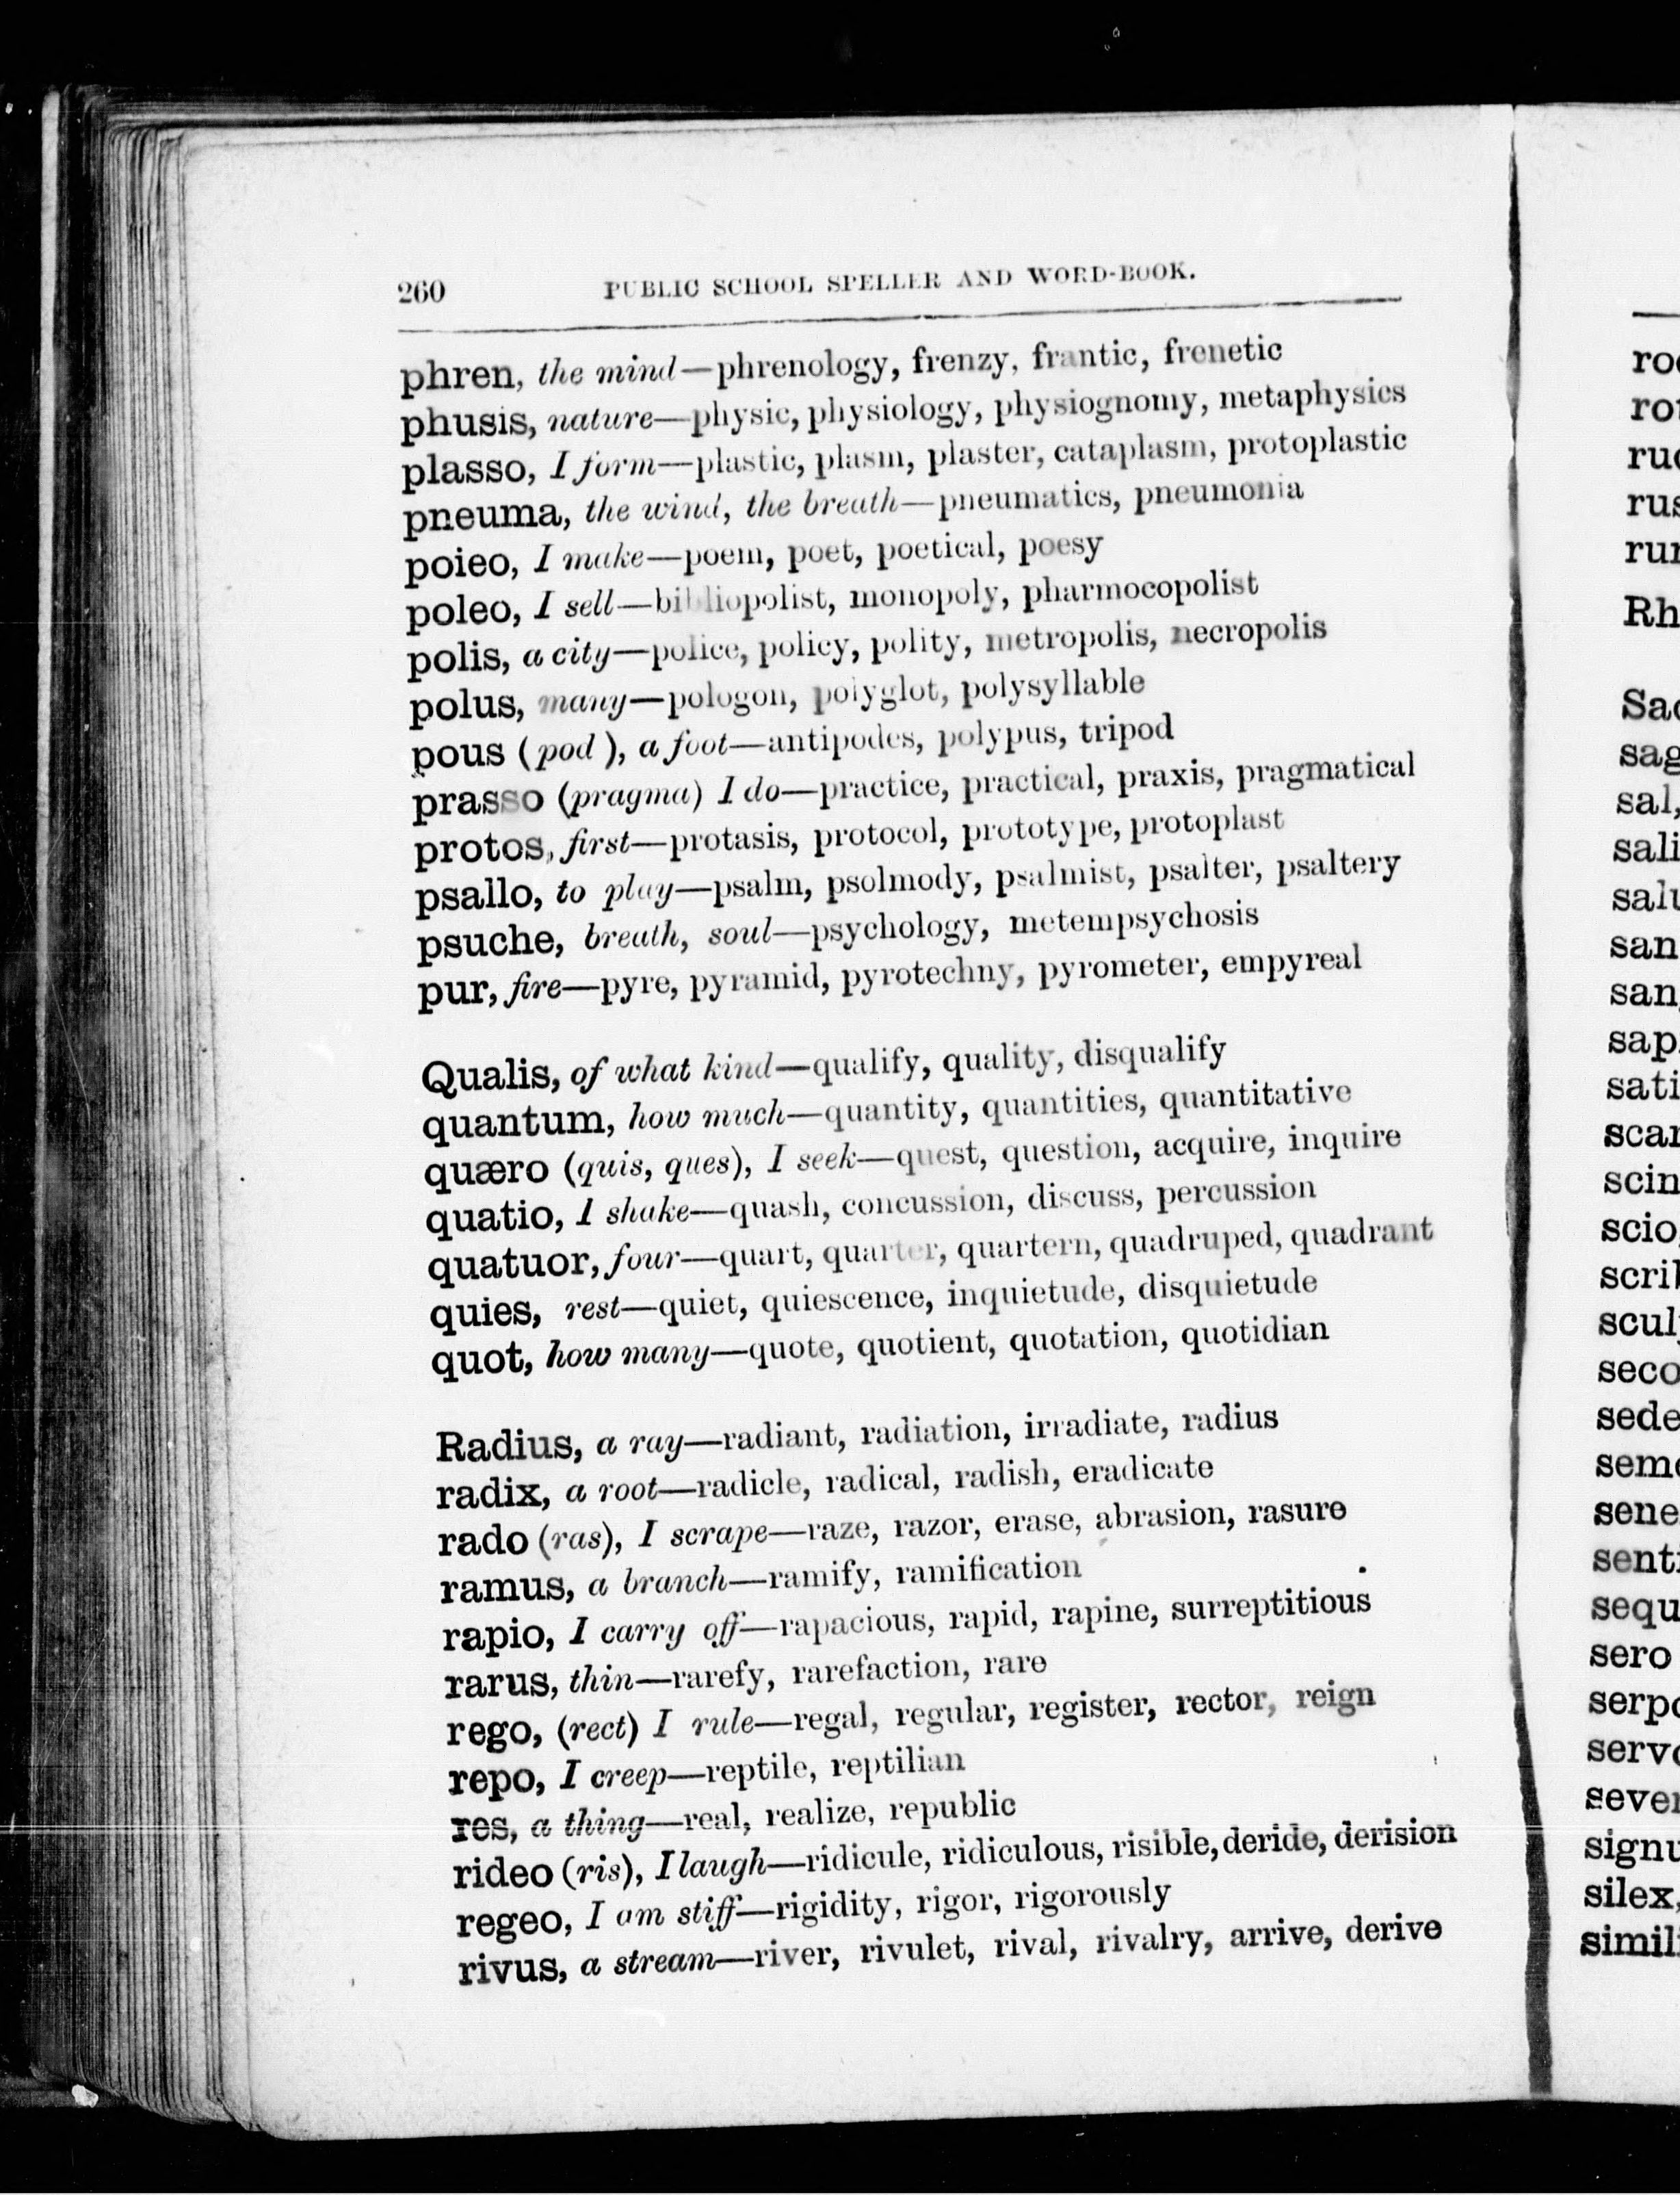 260 PUBLIC SCHOOL SPELLER AND WORD-BOOK.
phren, the mind—phrenology, frenzy, frantic, frenetic
phusis, nature—physic, physiology, physiognomy, metaphysics
plasso, I form—plastic, plasm, plaster, cataplasm, protoplastic
pneuma, the wind, the breath—pneumatics, pneumonia
poieo, I make—poem, poet, poetical, poesy
poleo, I sell—bibliopolist, monopoly, pharmocopolist
polis, a city—police, policy, polity, metropolis, necropolis
polus, many—pologon, polyglot, polysyllable
pous (pod), a foot—antipodes, polypus, tripod
prasso (pragma) I do—practice, practical, praxis, pragmatical
protos, first—protasis, protocol, prototype, protoplast
psallo, to play—psalm, psolmody, psalmist, psalter, psaltery
psuche, breath, soul—psychology, metempsychosis
pur, fire—pyre, pyramid, pyrotechny, pyrometer, empyreal
Qualis, of what kind—qualify, quality, disqualify
quantum, how much—quantity, quantities, quantitative
quæro (quis, ques), I seek—quest, question, acquire, inquire
quatio, I shake—quash, concussion, discuss, percussion
quatuor, four—quart, quarter, quartern, quadruped, quadrant
quies, rest—quiet, quiescence, inquietude, disquietude
quot, how many—quote, quotient, quotation, quotidian
Radius, a ray—radiant, radiation, irradiate, radius
radix, a root—radicle, radical, radish, eradicate
rado (ras), I scrape—raze, razor, erase, abrasion, rasure
ramus, a branch—ramify, ramification
rapio, I carry off—rapacious, rapid, rapine, surreptitious
rarus, thin—rarefy, rarefaction, rare
rego, (rect) I rule—regal, regular, register, rector, reign
repo, I creep—reptile, reptilian
res, a thing—real, realize, republic
rideo (ris), I laugh—ridicule, ridiculous, risible, deride, derision
regeo, I am stiff—rigidity, rigor, rigorously
rivus, a stream—river, rivulet, rival, rivalry, arrive, derive
sal,
scio
sero
silex,